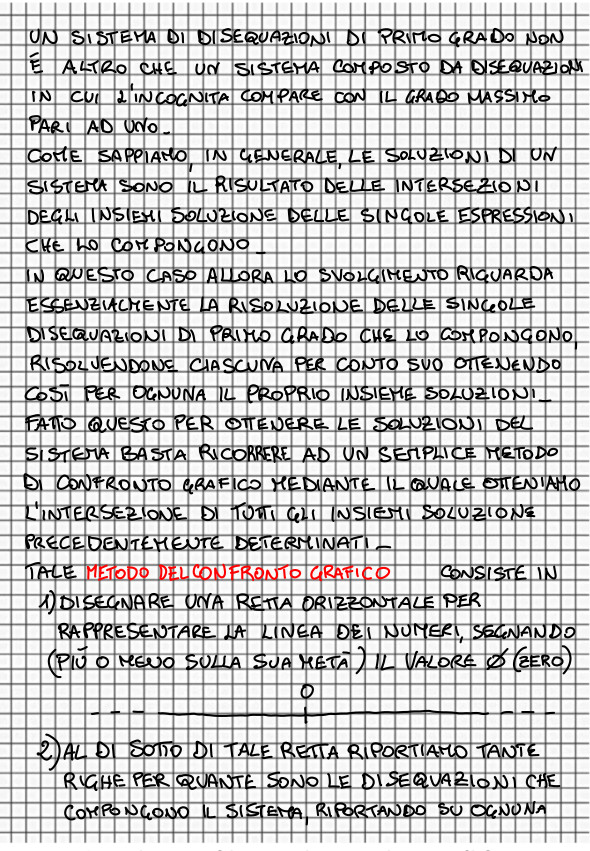 UN SISTEMA DI DISEQUAZIONI DI PRIMO GRADO NON
É ALTRO CHE UN SISTEMA COMPOSTO DA DISEQUAZIONI
IN CUI L'INCOGNITA COMPARE CON IL GRADO MASSIMO
PARI AD UNO_
COME SAPPIAMO, IN GENERALE, LE SOLUZIONI DI UN
SISTEMA SONO IL RISULTATO DELLE INTERSEZIONI
DEGLI INSIEMI SOLUZIONE DELLE SINGOLE ESPRESSIONI
CHE LO COMPONGONO_
IN QUESTO CASO ALLORA LO SVOLGIMENTO RIGUARDA
ESSENZIALMENTE LA RISOLUZIONE DELLE SINGOLE
DISEQUAZIONI DI PRIMO GRADO CHE LO COMPONGONO,
RISOLVENDONE CIASCUNA PER CONTO SUO OTTENENDO
COSÌ PER OGNUNA IL PROPRIO INSIEME SOLUZIONI_
FATTO QUESTO PER OTTENERE LE SOLUZIONI DEL
SISTEMA BASTA RICORRERE AD UN SEMPLICE METODO
DI CONFRONTO GRAFICO MEDIANTE IL QUALE OTTENIAMO
L'INTERSEZIONE DI TUTTI GLI INSIEMI SOLUZIONE
PRECEDENTEMENTE DETERMINATI_
TALE METODO DEL CONFRONTO GRAFICO CONSISTE IN
1) DISEGNARE UNA RETTA ORIZZONTALE PER
RAPPRESENTARE LA LINEA DEI NUMERI, SEGNANDO
(PIÙ O MENO SULLA SUA METÀ) IL VALORE Ø (ZERO)
0
2) AL DI SOTTO DI TALE RETTA RIPORTIAMO TANTE
RIGHE PER QUANTE SONO LE DISEQUAZIONI CHE
COMPONGONO IL SISTEMA, RIPORTANDO SU OGNUNA